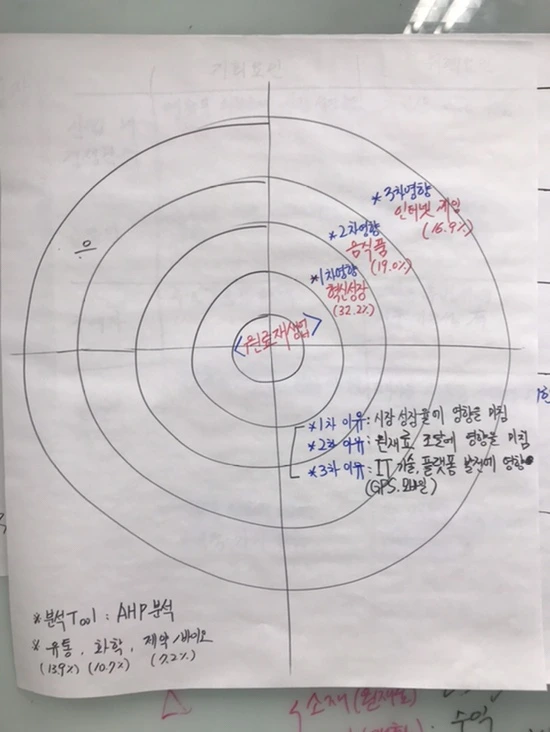 *3차영향
인터넷 게임
(16.9%)
*2차영향
음식품
(19.0%)
*1차영향
혁신성장
(32.2%)
<원료재생업>
*1차 이유: 시장 성장률에 영향을 미침
*2차 이유: 원재료 조달에 영향을 미침
*3차 이유: IT 기술, 플랫폼 발전에 영향
(GPS.모바일)
*분석Tool: AHP분석
*유통, 화학, 제약/바이오
(13.9%) (10.7%) (7.2%)
소재(원재료)
수익